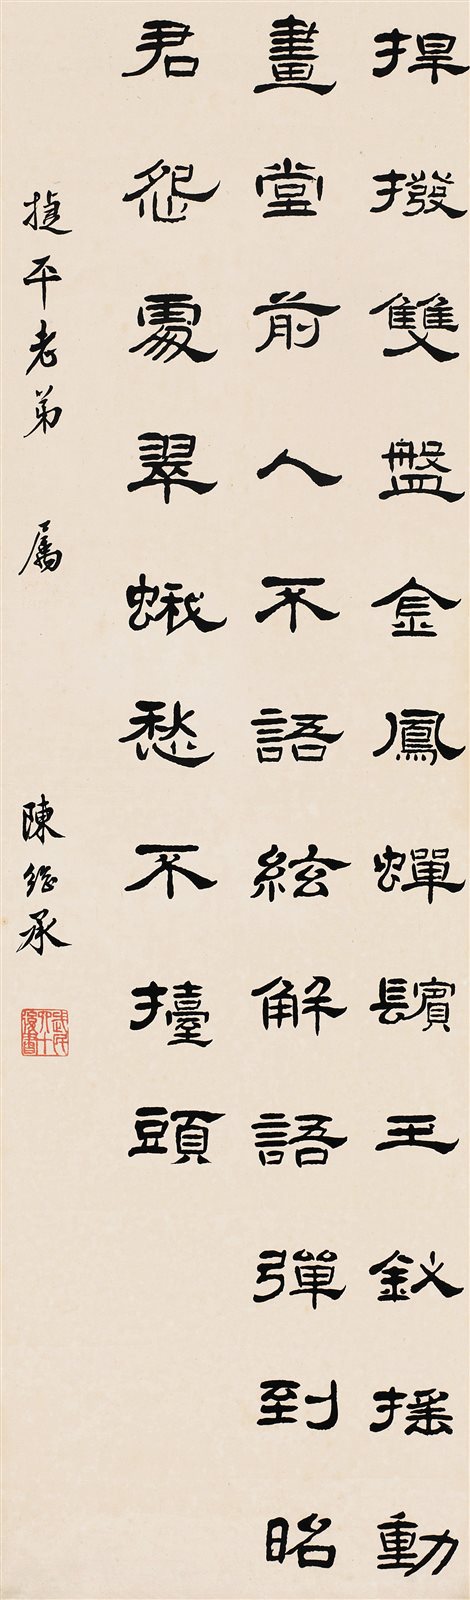 捍撥雙盤金鳳蟬鬢王釵搖動
畫堂前人不語絃解語彈到昭
君怨處翠蛾愁不擡頭
捷平老弟 屬
陳繼承